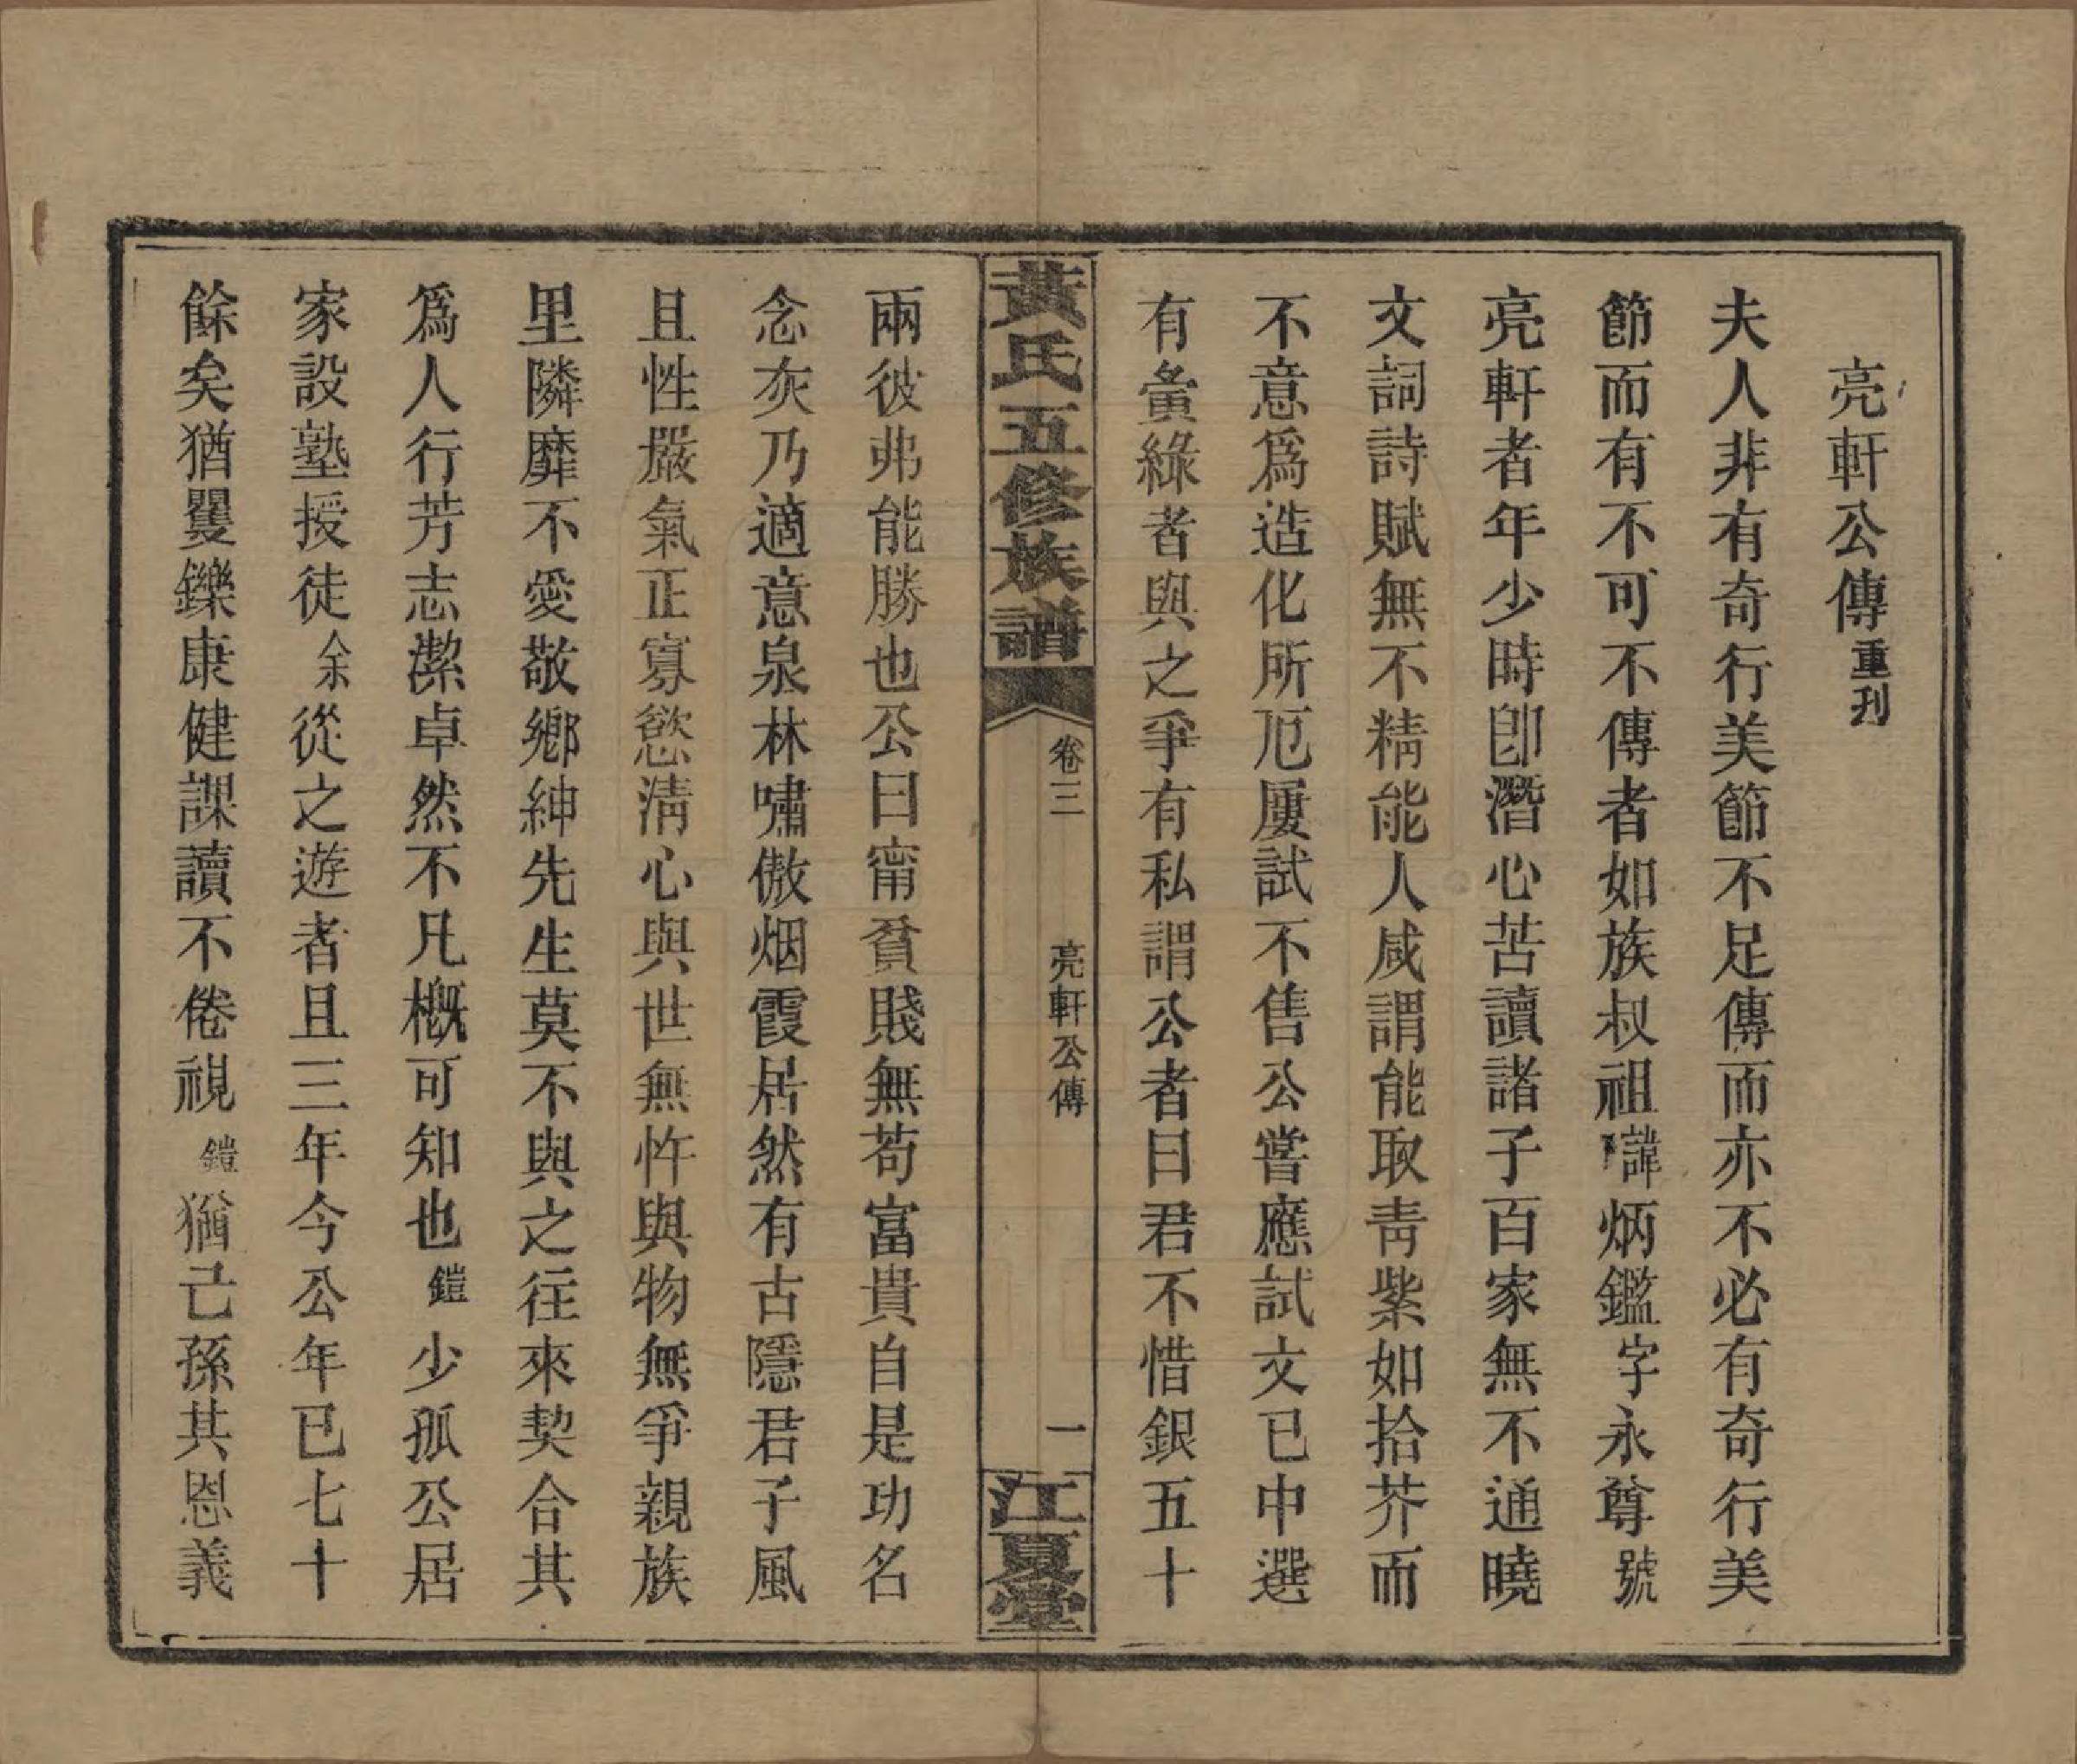 亮軒公傳重刊
夫人非有奇行美節不足傳而亦不必有奇行美
節而有不可不傳者如族叔祖諱炳鑑字永尊號
亮軒者年少時卽潛心苦讀諸子百家無不通曉
文詞詩賦無不精能人咸謂能取靑紫如拾芥而
不意爲造化所厄屢試不售公嘗應試文已中選
有夤緣者與之爭有私謂公者曰君不惜銀五十
黃氏五修族譜
卷三
亮軒公傳
一
江夏堂
兩彼弗能勝也公曰甯貧賤無苟富貴自是功名
念灰乃適意泉林嘯傲烟霞居然有古隱君子風
且性嚴氣正寡慾淸心與世無忤與物無爭親族
里隣靡不愛敬鄉紳先生莫不與之往來契合其
爲人行芳志潔卓然不凡槪可知也鎧少孤公居
家設塾授徒余從之遊者且三年今公年已七十
餘矣猶矍鑠康健課讀不倦視鎧猶己孫其恩義